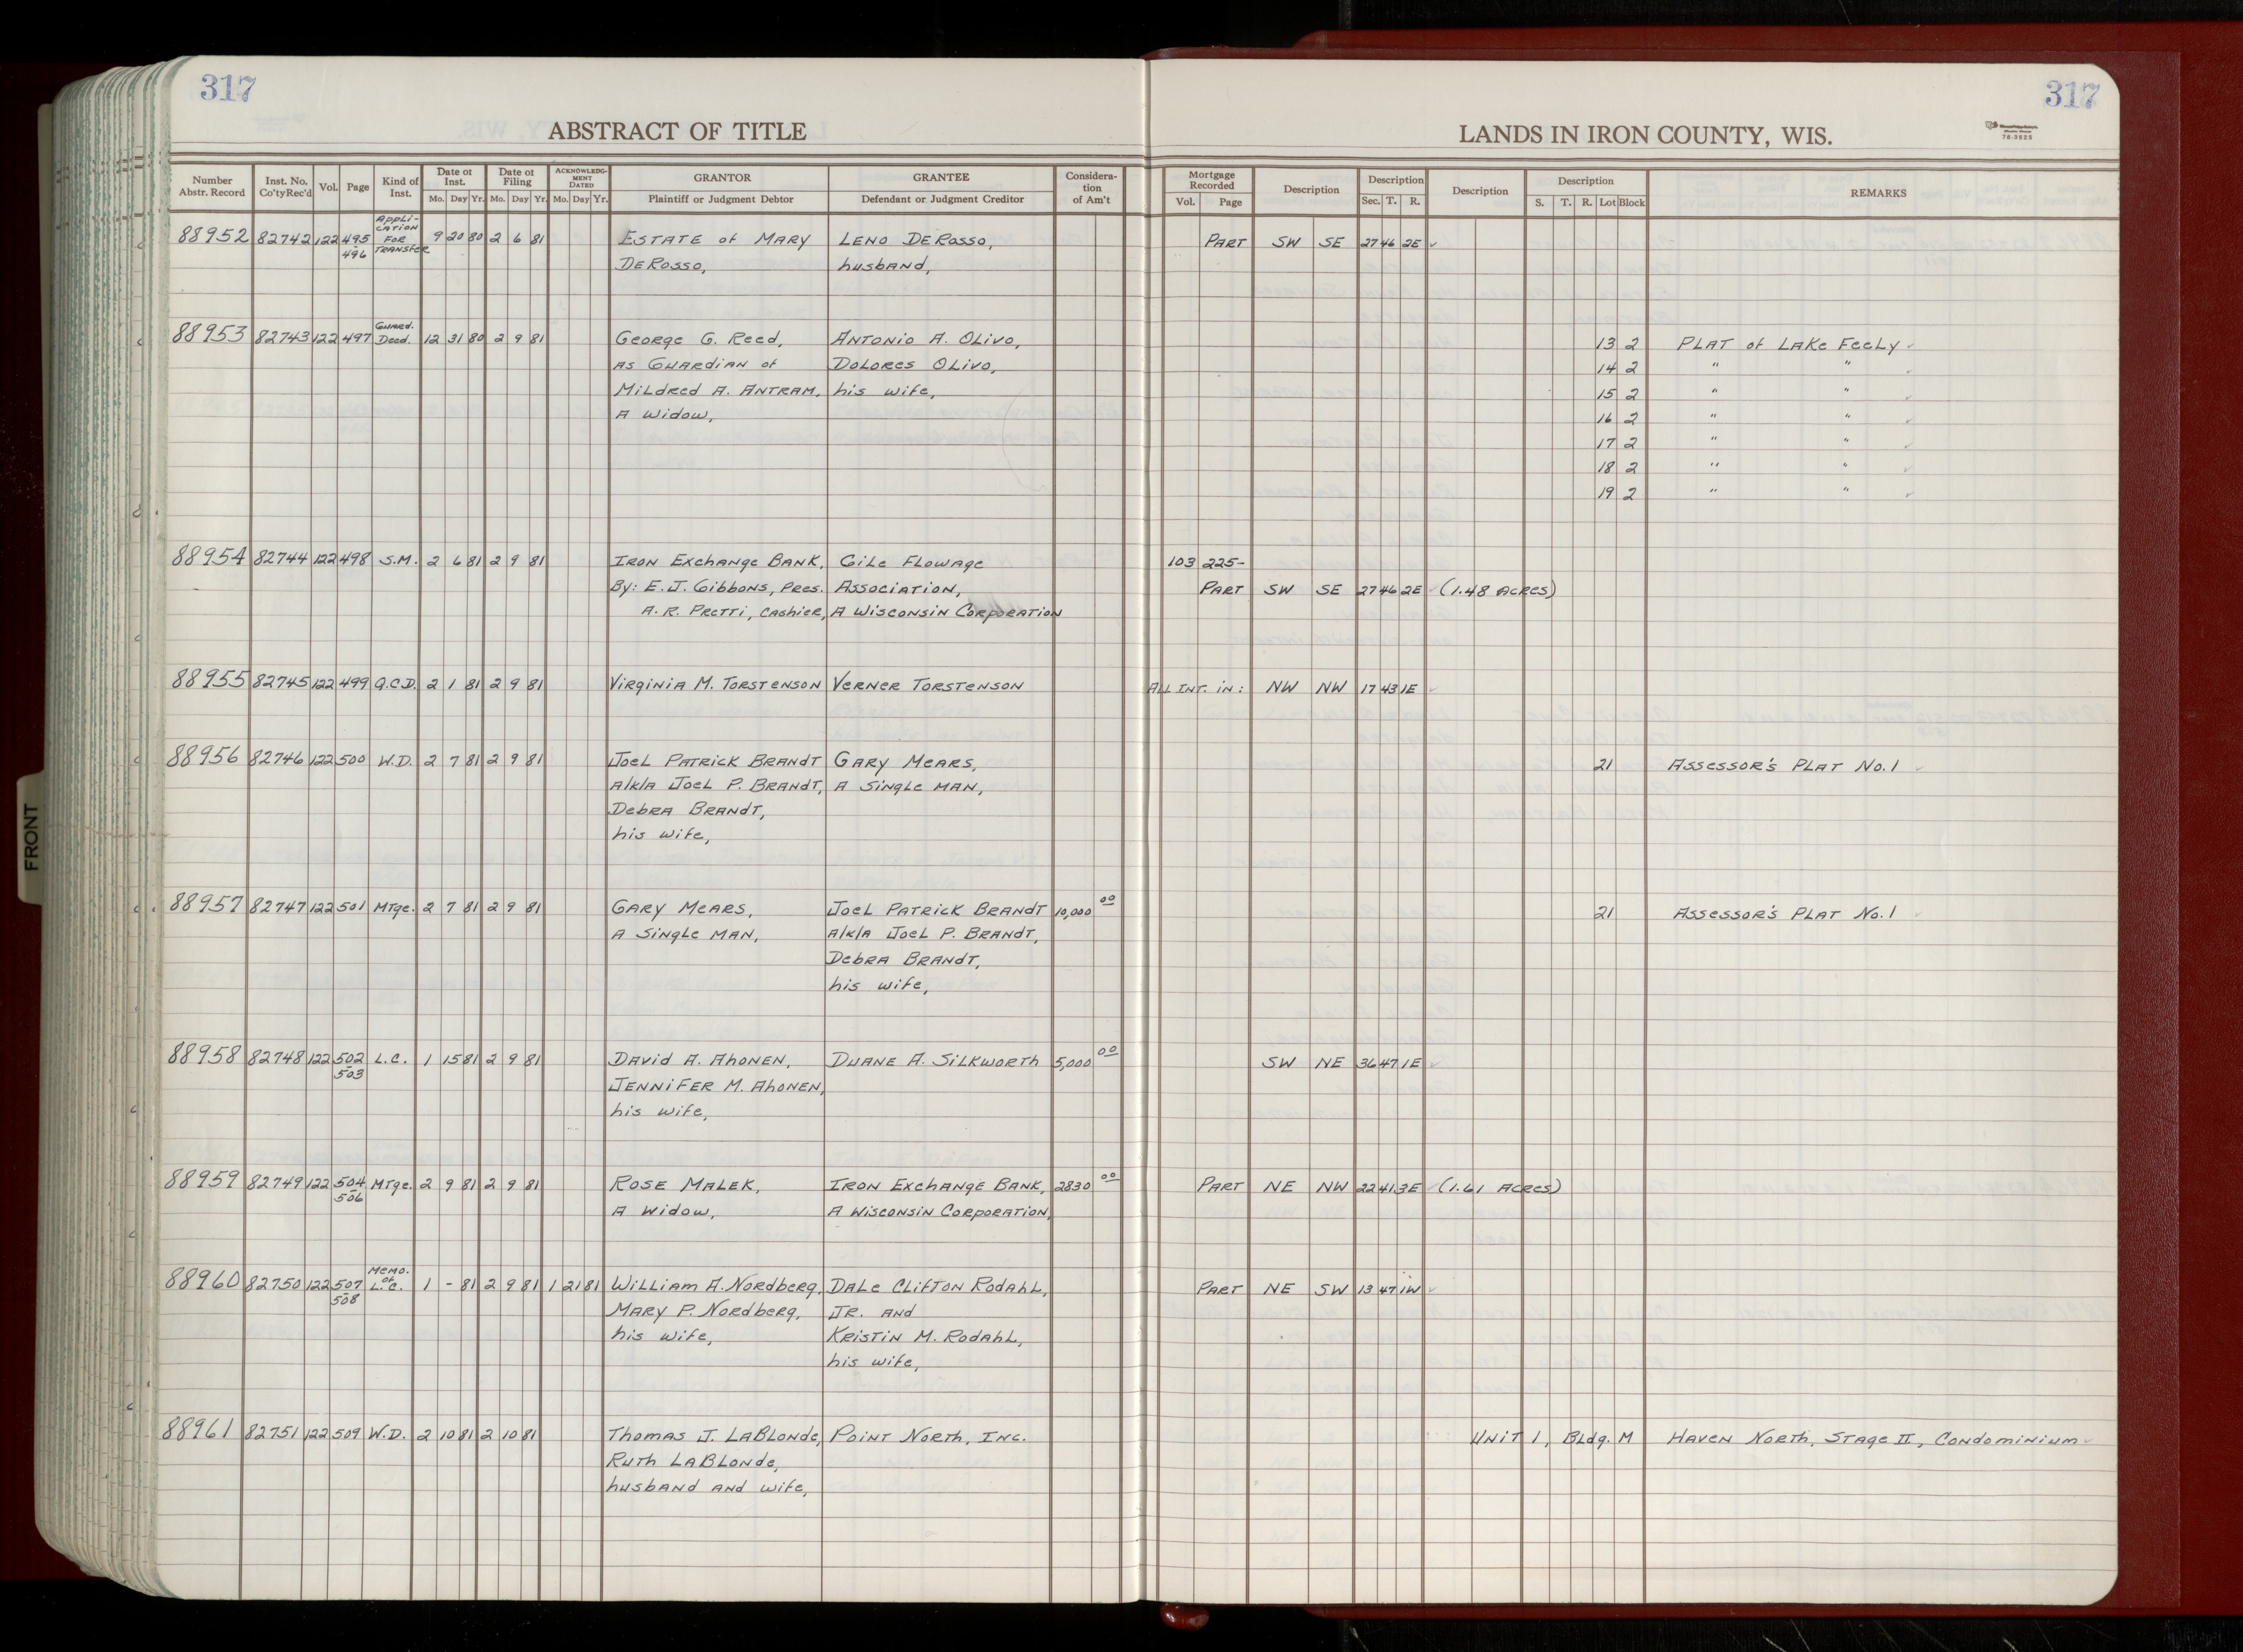 317
317
ABSTRACT OF TITLE
LANDS IN IRON COUNTY, WIS.
78-3525
Number Abstr. Record | Inst. No. Co'ty Rec'd | Vol. | Page | Kind of Inst. | Date of Inst. Mo. Day Yr. | Date of Filing Mo. Day Yr. | ACKNOWLEDGMENT DATED Mo. Day Yr. | GRANTOR Plaintiff or Judgment Debtor | GRANTEE Defendant or Judgment Creditor | Consideration of Am't | Mortgage Recorded Vol. Page | Description | Description Sec. T. R. | Description | Description S. T. R. Lot Block | REMARKS
88952 82742 122 495-496 Application for Transfer 9 20 80 2 6 81 Estate of Mary Leno DeRosso, Part SW SE 27 46 2E ✓
DeRosso, husband,
88953 82743 122 497 Guard. Deed. 12 31 80 2 9 81 George G. Reed, Antonio A. Olivo, 13 2 Plat of Lake Feely ✓
as Guardian of Dolores Olivo, 14 2 " " ✓
Mildred A. Antram, his wife, 15 2 " " ✓
a widow, 16 2 " " ✓
17 2 " " ✓
18 2 " " ✓
19 2 " " ✓
88954 82744 122 498 S.M. 2 6 81 2 9 81 Iron Exchange Bank, Gile Flowage 103 225-
By: E.J. Gibbons, Pres. Association, Part SW SE 27 46 2E ✓ (1.48 Acres)
A.R. Pretti, Cashier, a Wisconsin Corporation
88955 82745 122 499 Q.C.D. 2 1 81 2 9 81 Virginia M. Torstenson Verner Torstenson All Int. in: NW NW 17 43 1E ✓
88956 82746 122 500 W.D. 2 7 81 2 9 81 Joel Patrick Brandt Gary Mears, 21 Assessor's Plat No. 1 ✓
a/k/a Joel P. Brandt, a single man,
Debra Brandt,
his wife,
88957 82747 122 501 Mtge. 2 7 81 2 9 81 Gary Mears, Joel Patrick Brandt 10,000 00 21 Assessor's Plat No. 1 ✓
a single man, a/k/a Joel P. Brandt,
Debra Brandt,
his wife,
88958 82748 122 502-503 L.C. 1 15 81 2 9 81 David A. Ahonen, Duane A. Silkworth 5,000 00 SW NE 36 47 1E ✓
Jennifer M. Ahonen,
his wife,
88959 82749 122 504-506 Mtge. 2 9 81 2 9 81 Rose Malek, Iron Exchange Bank, 2830 00 Part NE NW 22 41 3E ✓ (1.61 Acres)
a widow, a Wisconsin Corporation,
88960 82750 122 507-508 Memo. of L.C. 1 - 81 2 9 81 1 21 81 William A. Nordberg, Dale Clifton Rodahl, Part NE SW 13 47 1W ✓
Mary P. Nordberg, Jr. and
his wife, Kristin M. Rodahl,
his wife,
88961 82751 122 509 W.D. 2 10 81 2 10 81 Thomas J. LaBlonde, Point North, Inc. Unit 1, Bldg. M Haven North, Stage II, Condominium ✓
Ruth LaBlonde,
husband and wife,
FRONT